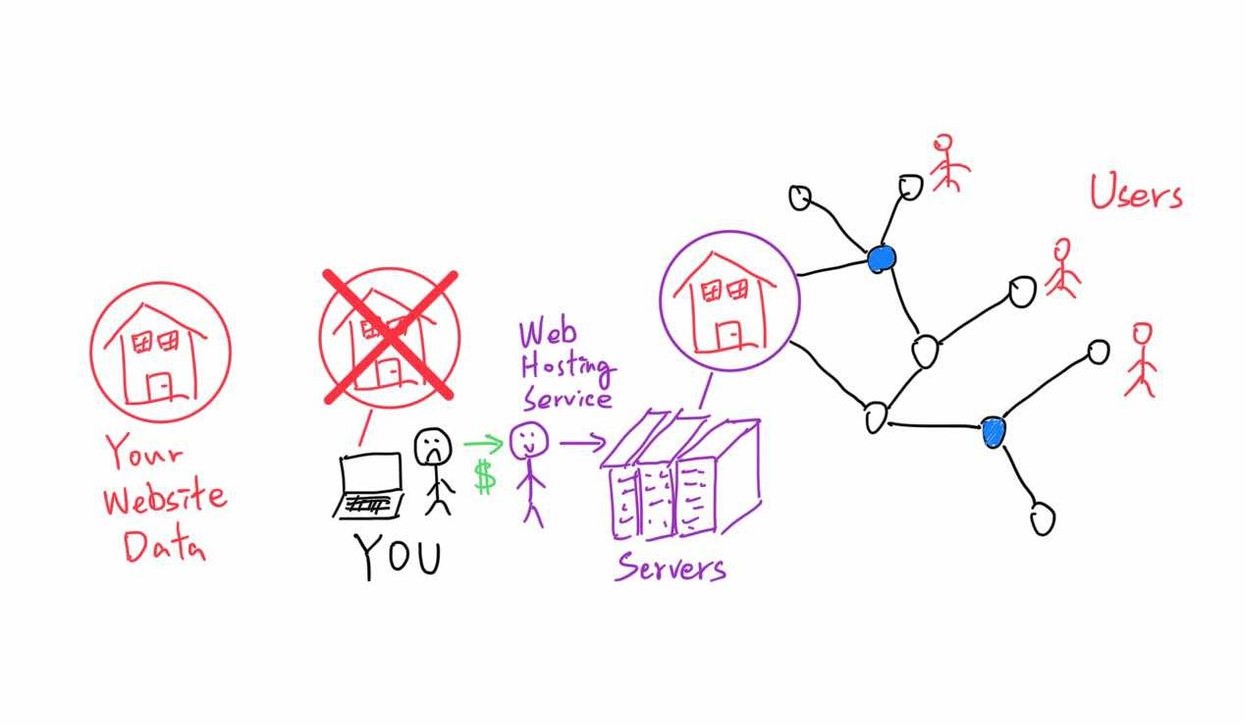 Your
Website
Data
YOU
$
Web
Hosting
Service
Servers
Users